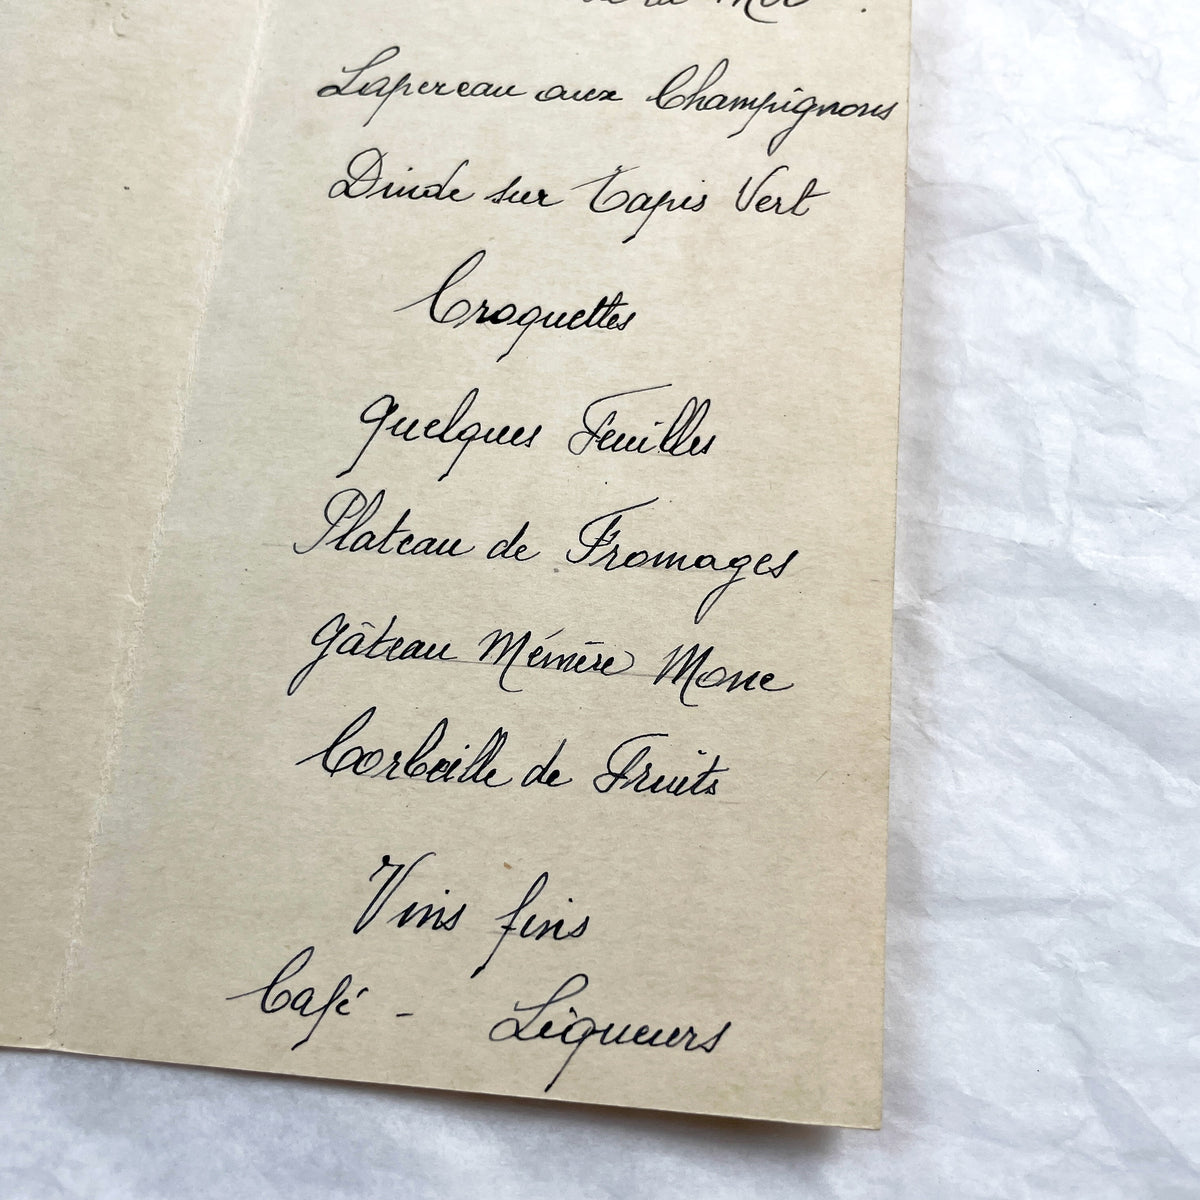 de la Mer.
Lapereau aux Champignons
Dinde sur Tapis Vert
Croquettes
Quelques Feuilles
Plateau de Fromages
Gâteau Mémère Mone
Corbeille de Fruits
Vins fins
Café - Liqueurs